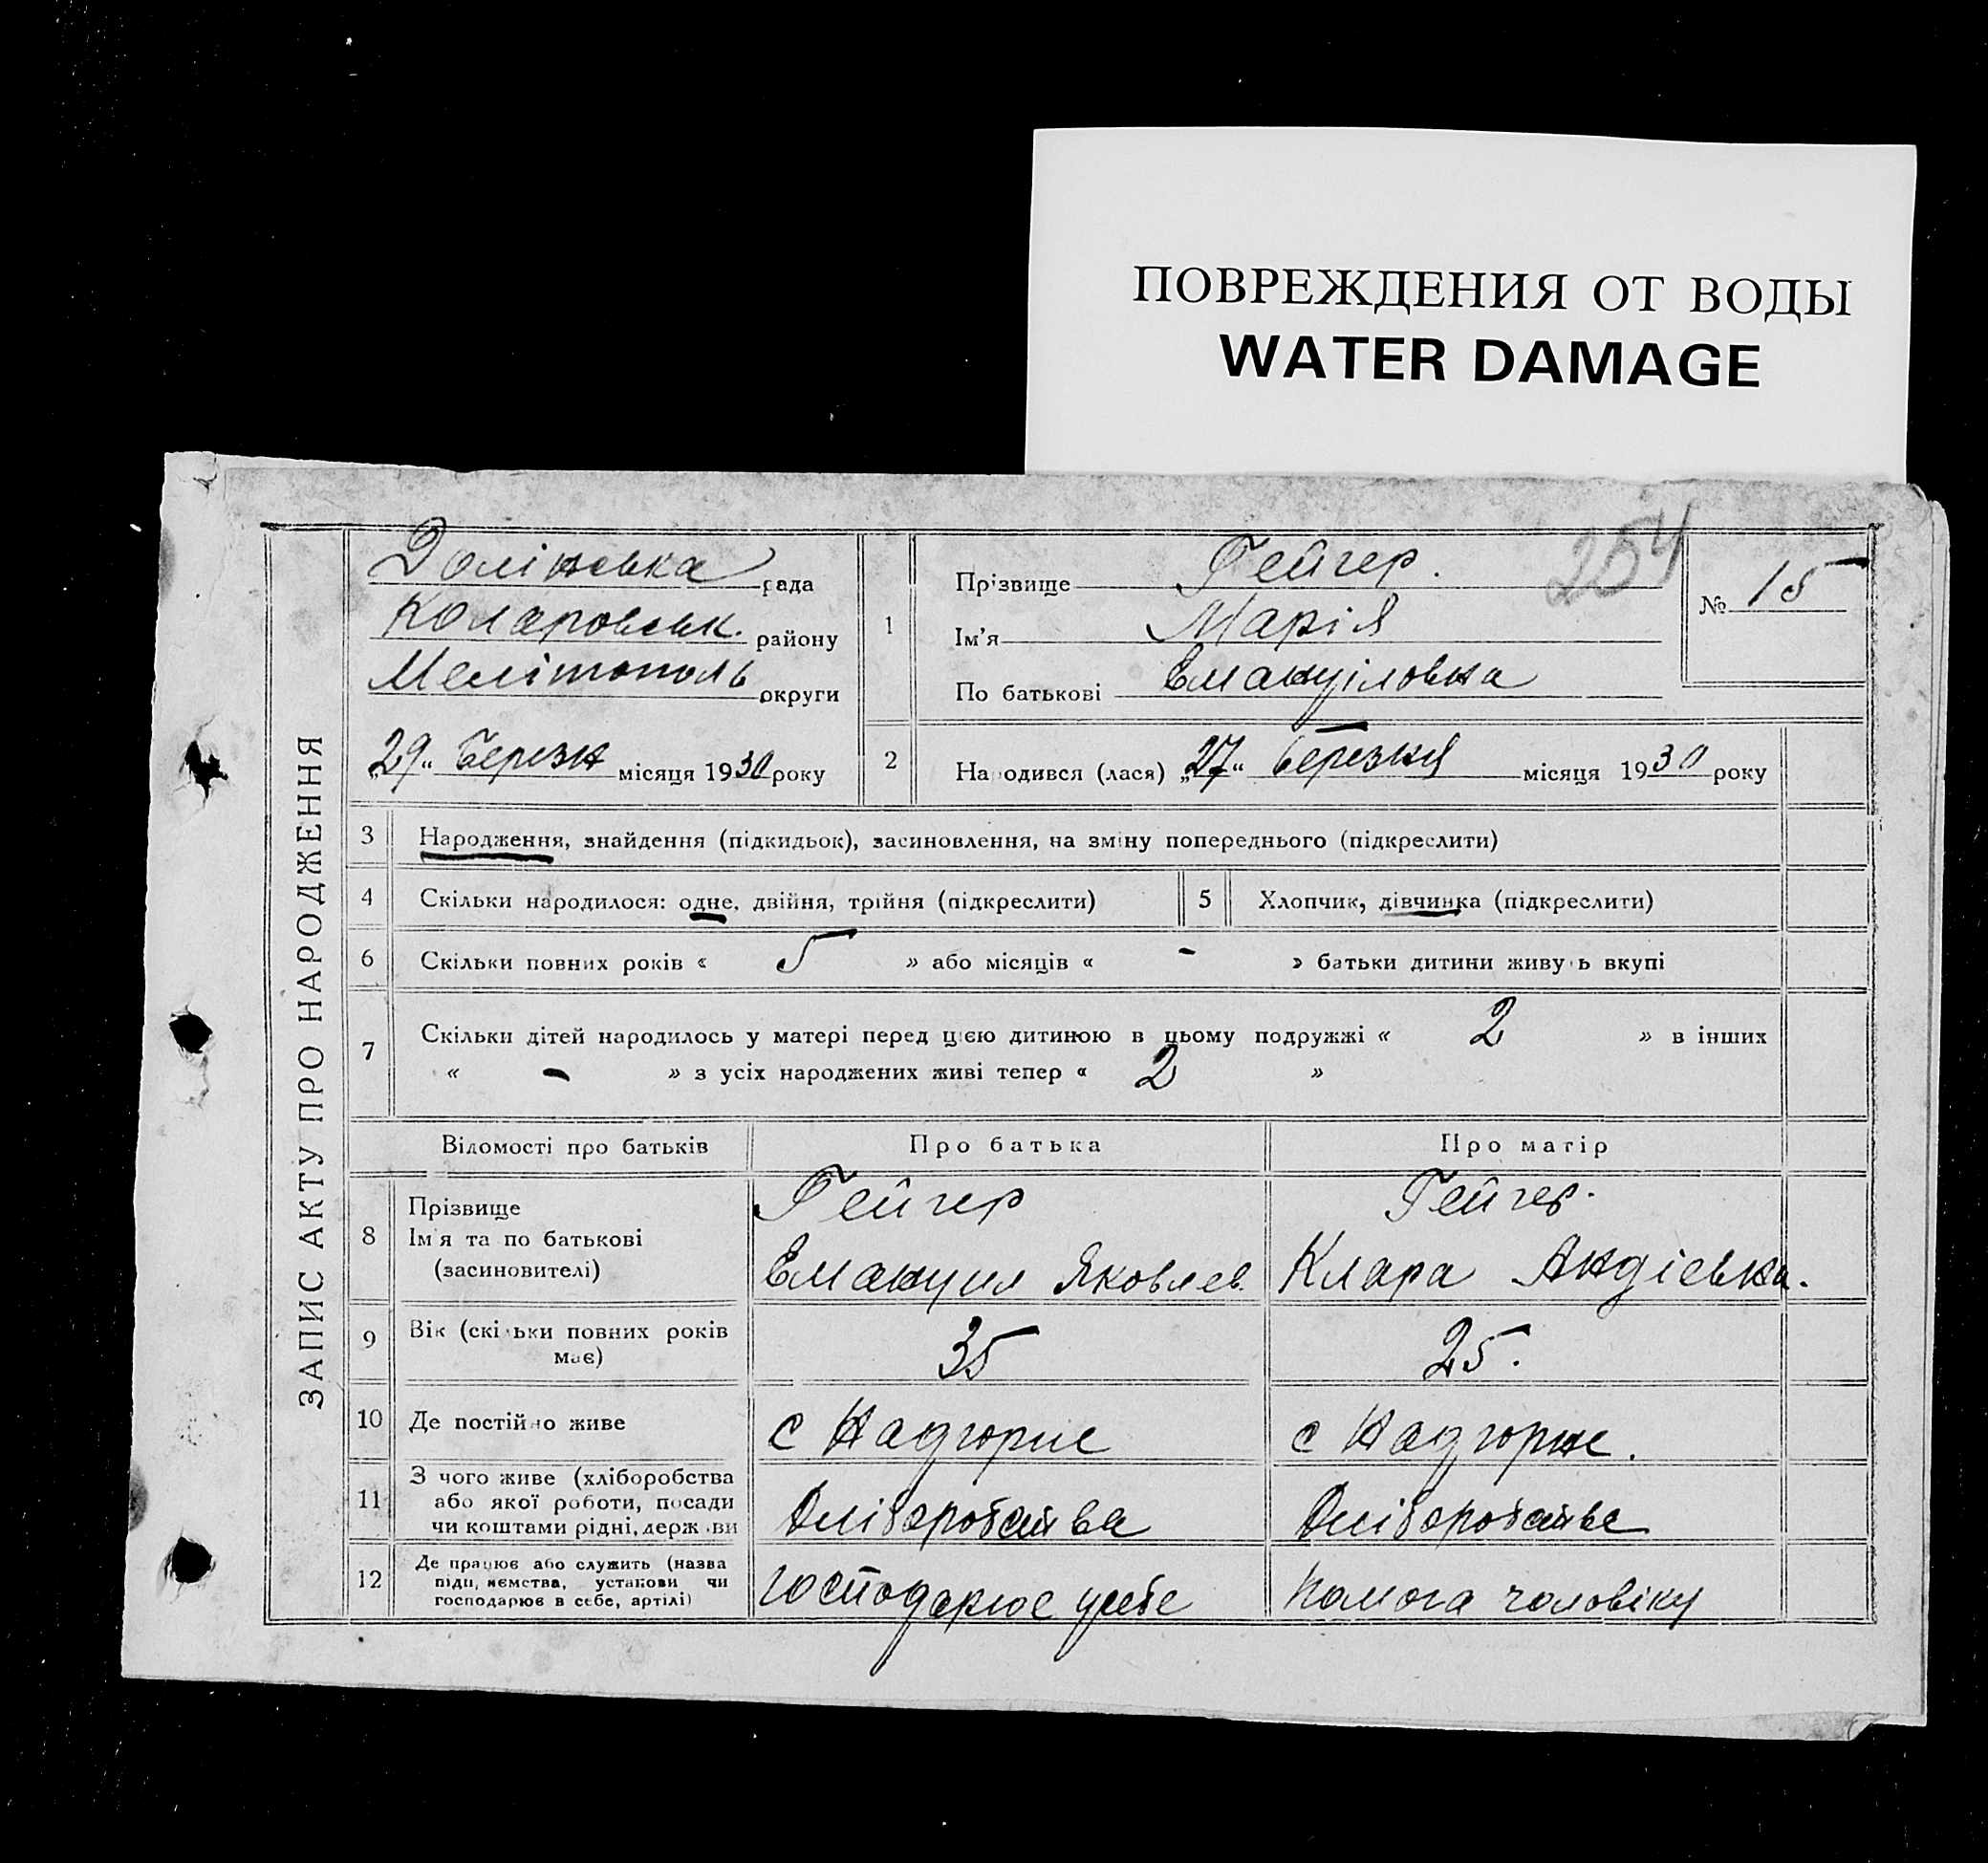 ПОВРЕЖДЕНИЯ ОТ ВОДЫ
WATER DAMAGE
254
ЗАПИС АКТУ ПРО НАРОДЖЕННЯ
Долінська рада
Коларовськ. району
Мелітополь округи
„29“ Березн місяця 1930 року
1
Прізвище Гейгер.
Ім'я Марія
По батькові Емануіловна
№ 15
2 Народився (лася) „27“ березня місяця 1930 року
3 Народження, знайдення (підкидьок), засиновлення, на зміну попереднього (підкреслити)
4 Скільки народилося: одне, двійня, трійня (підкреслити) 5 Хлопчик, дівчинка (підкреслити)
6 Скільки повних років « 5 » або місяців « - » батьки дитини живуть вкупі
7 Скільки дітей народилось у матері перед цією дитиною в цьому подружжі « 2 » в інших
« - » з усіх народжених живі тепер « 2 »
Відомості про батьків Про батька Про матір
8 Прізвище Гейгер Гейгер.
Ім'я та по батькові
(засиновителі) Емануил Яковлев. Клара Андіевна.
9 Вік (скільки повних років має) 35 25.
10 Де постійно живе с Надгорне с Надгорне.
11 З чого живе (хліборобства
або якої роботи, посади
чи коштами рідні, держави Хліборобства Хліборобства
12 Де працює або служить (назва
підприємства, установи чи
господарює в себе, артілі) господарює усебе помога чоловіку